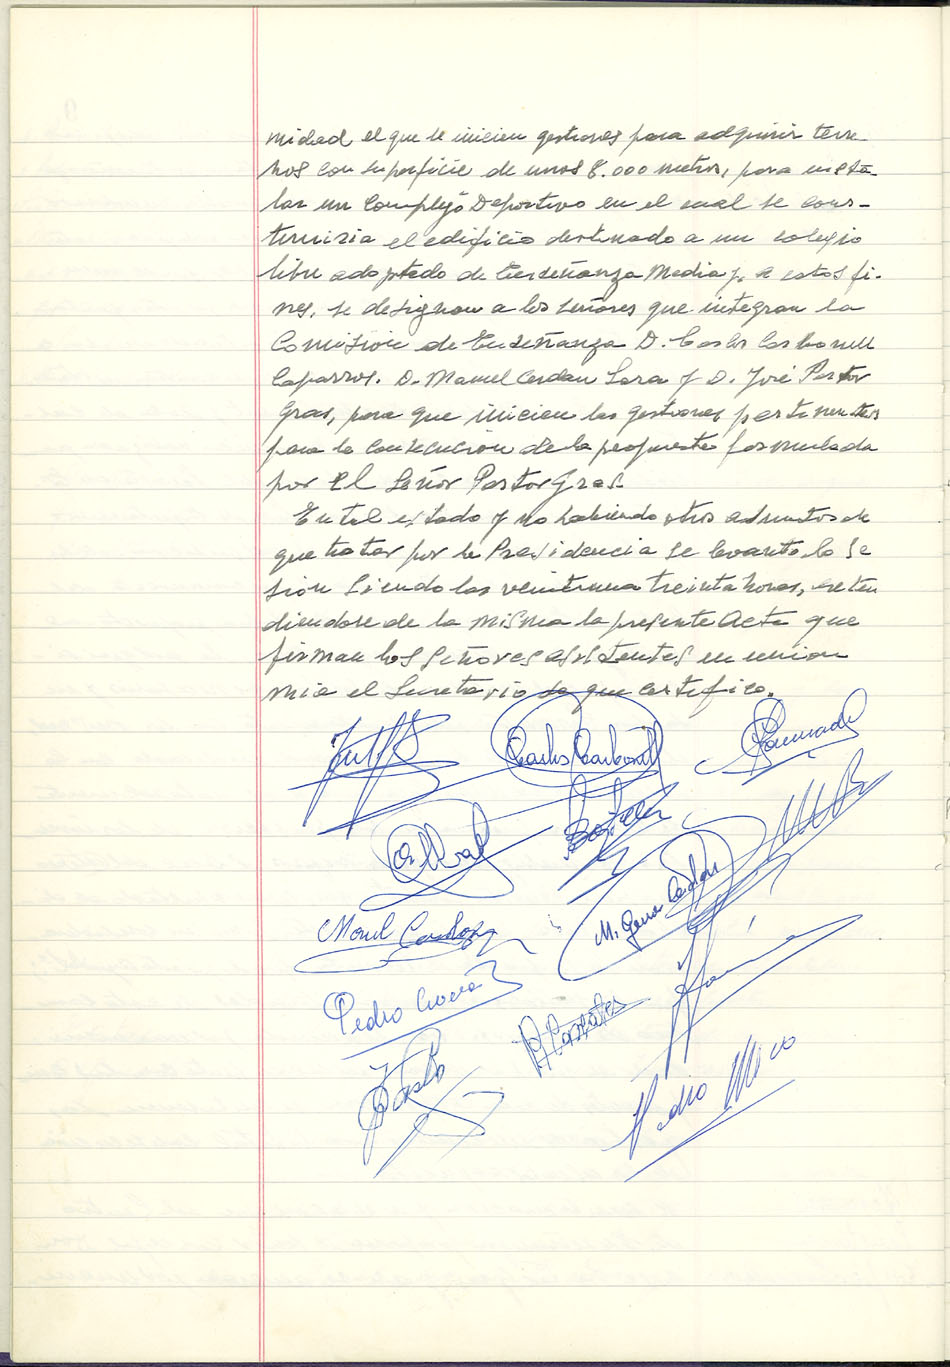 midad el que se inicien gestiones para adquirir terre-
nos con superficie de unos 8.000 metros, para insta-
lar un Complejo Deportivo en el cual se cons-
truiria el edificio destinado a un colegio
libre adoptado de Enseñanza Media y, a estos fi-
nes, se designan a los señores que integran la
Comision de Enseñanza D. Carlos Carbonell
Caparros. D. Manuel Cerdan Lara y D. José Pastor
Gras, para que inicien las gestiones pertinentes
para la consecucion de la propuesta formulada
por el Señor Pastor Gras.
En tal estado y no habiendo otros asuntos de
que tratar por la Presidencia se levanto la se
sion siendo las veintiuna treinta horas, exten
diendose de la misma la presente Acta que
firman los señores asistentes en union
mia el Secretario de que certifico.
Carlos Carbonell
Manuel
M. Cerdan
Pedro
Pedro Mico